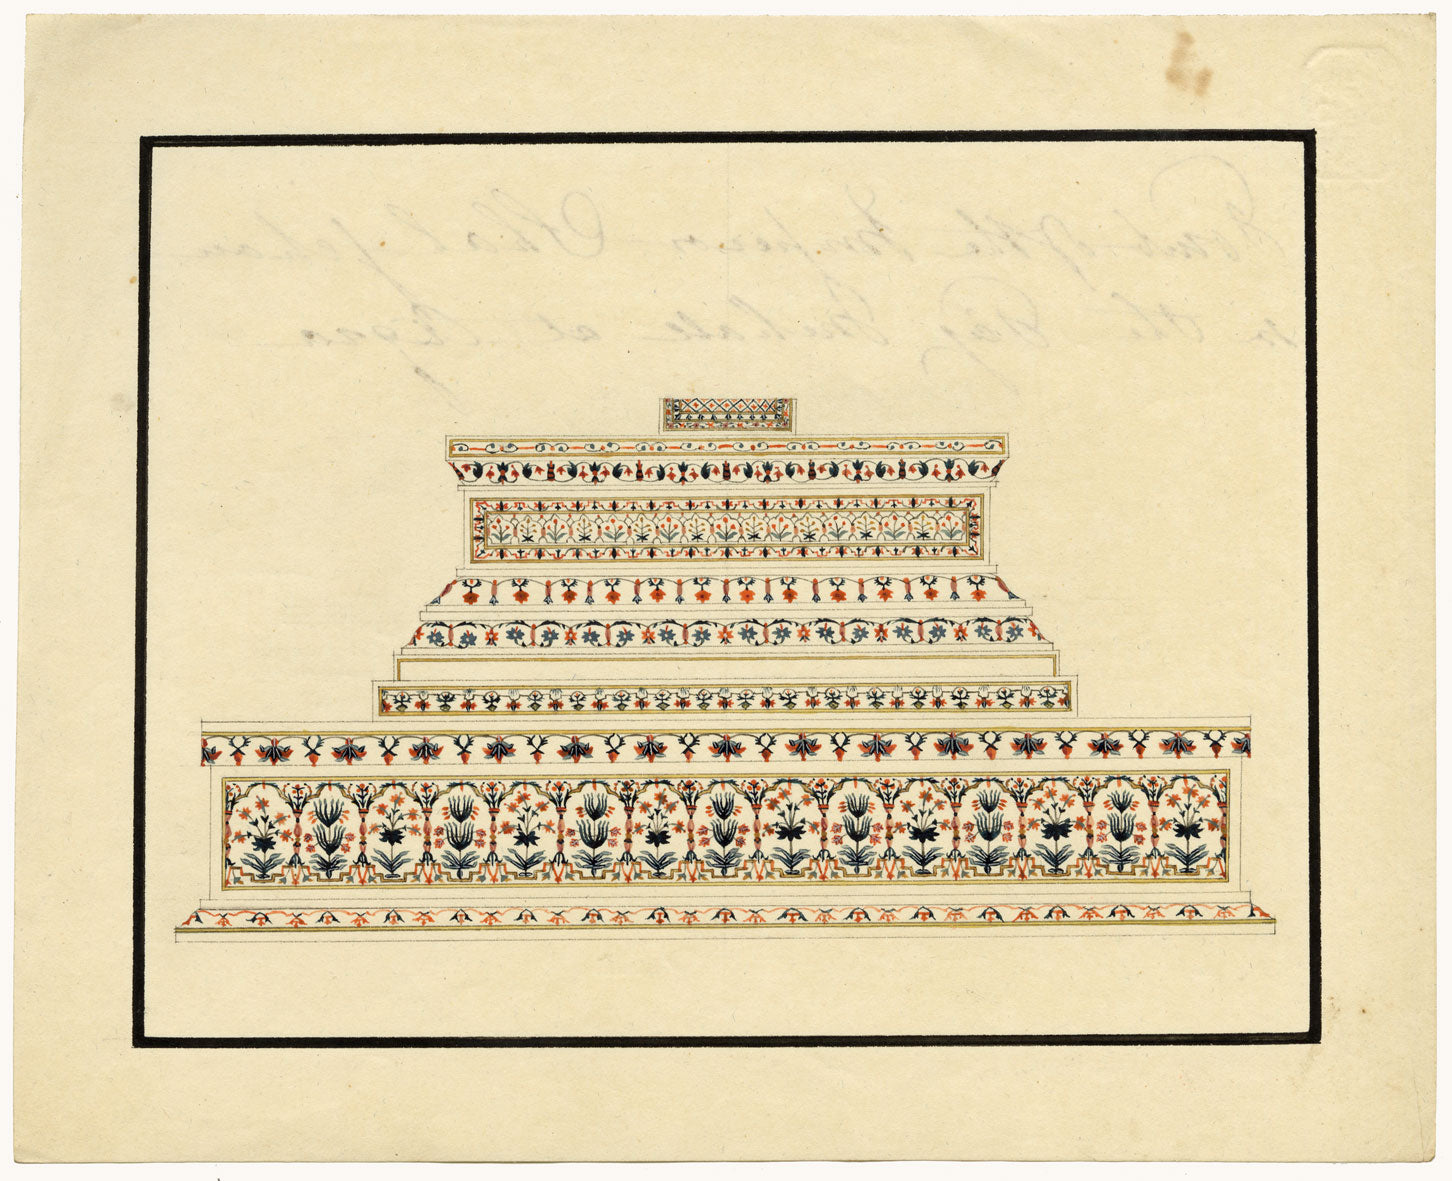 Tomb of the Emperor Shah Jehan
in the Taj at Agra